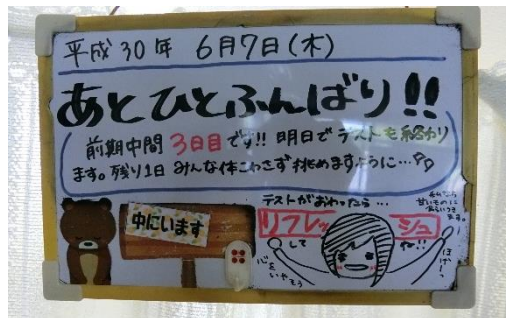 平成30年 6月7日(木)
あとひとふんばり!!
前期中間 3日目です!! 明日でテストも終わり
ます。残り1日 みんな体こわさず挑めますように…
中にいます
テストがおわったら…
リフレッシュ
して
ね!!
心をいやそう